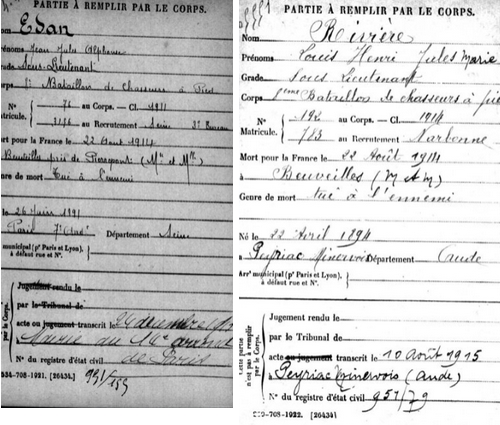 PARTIE À REMPLIR PAR LE CORPS.
Nom ESAN
Prénoms Jean Jules Alphonse
Grade Sous-Lieutenant
Corps Bataillon de Chasseurs à Pied
N° 71 au Corps. — Cl. 1911
Matricule. au Recrutement Seine 3e Bureau
Mort pour la France le 22 Août 1914
Beuveille près de Pierrepont (Mthe et Mlle)
Genre de mort Tué à l'ennemi
Né le 26 Juin 1891
Paris 7e Arrt Département Seine
Arrt municipal (pr Paris et Lyon),
à défaut rue et N°.
Jugement rendu le
par le Tribunal de
acte ou jugement transcrit le 24 décembre
Mairie du arrondt
de Paris
N° du registre d'état civil 991/155
534-708-1921. [26434]
PARTIE À REMPLIR PAR LE CORPS.
Nom Rivière
Prénoms Louis Henri Jules Marie
Grade Sous Lieutenant
Corps Bataillon de chasseurs à pied
N° 192 au Corps. — Cl. 1914
Matricule. 783 au Recrutement Narbonne
Mort pour la France le 22 Août 1914
à Beuveilles (M & M)
Genre de mort tué à l'ennemi
Né le 22 Avril 1894
à Peyriac Minervois Département Aude
Arrt municipal (pr Paris et Lyon),
à défaut rue et N°.
Cette partie n'est pas à remplir par le Corps.
Jugement rendu le
par le Tribunal de
acte ou jugement transcrit le 10 Août 1915
à Peyriac Minervois (Aude)
N° du registre d'état civil 951/79
-708-1922. [26434]